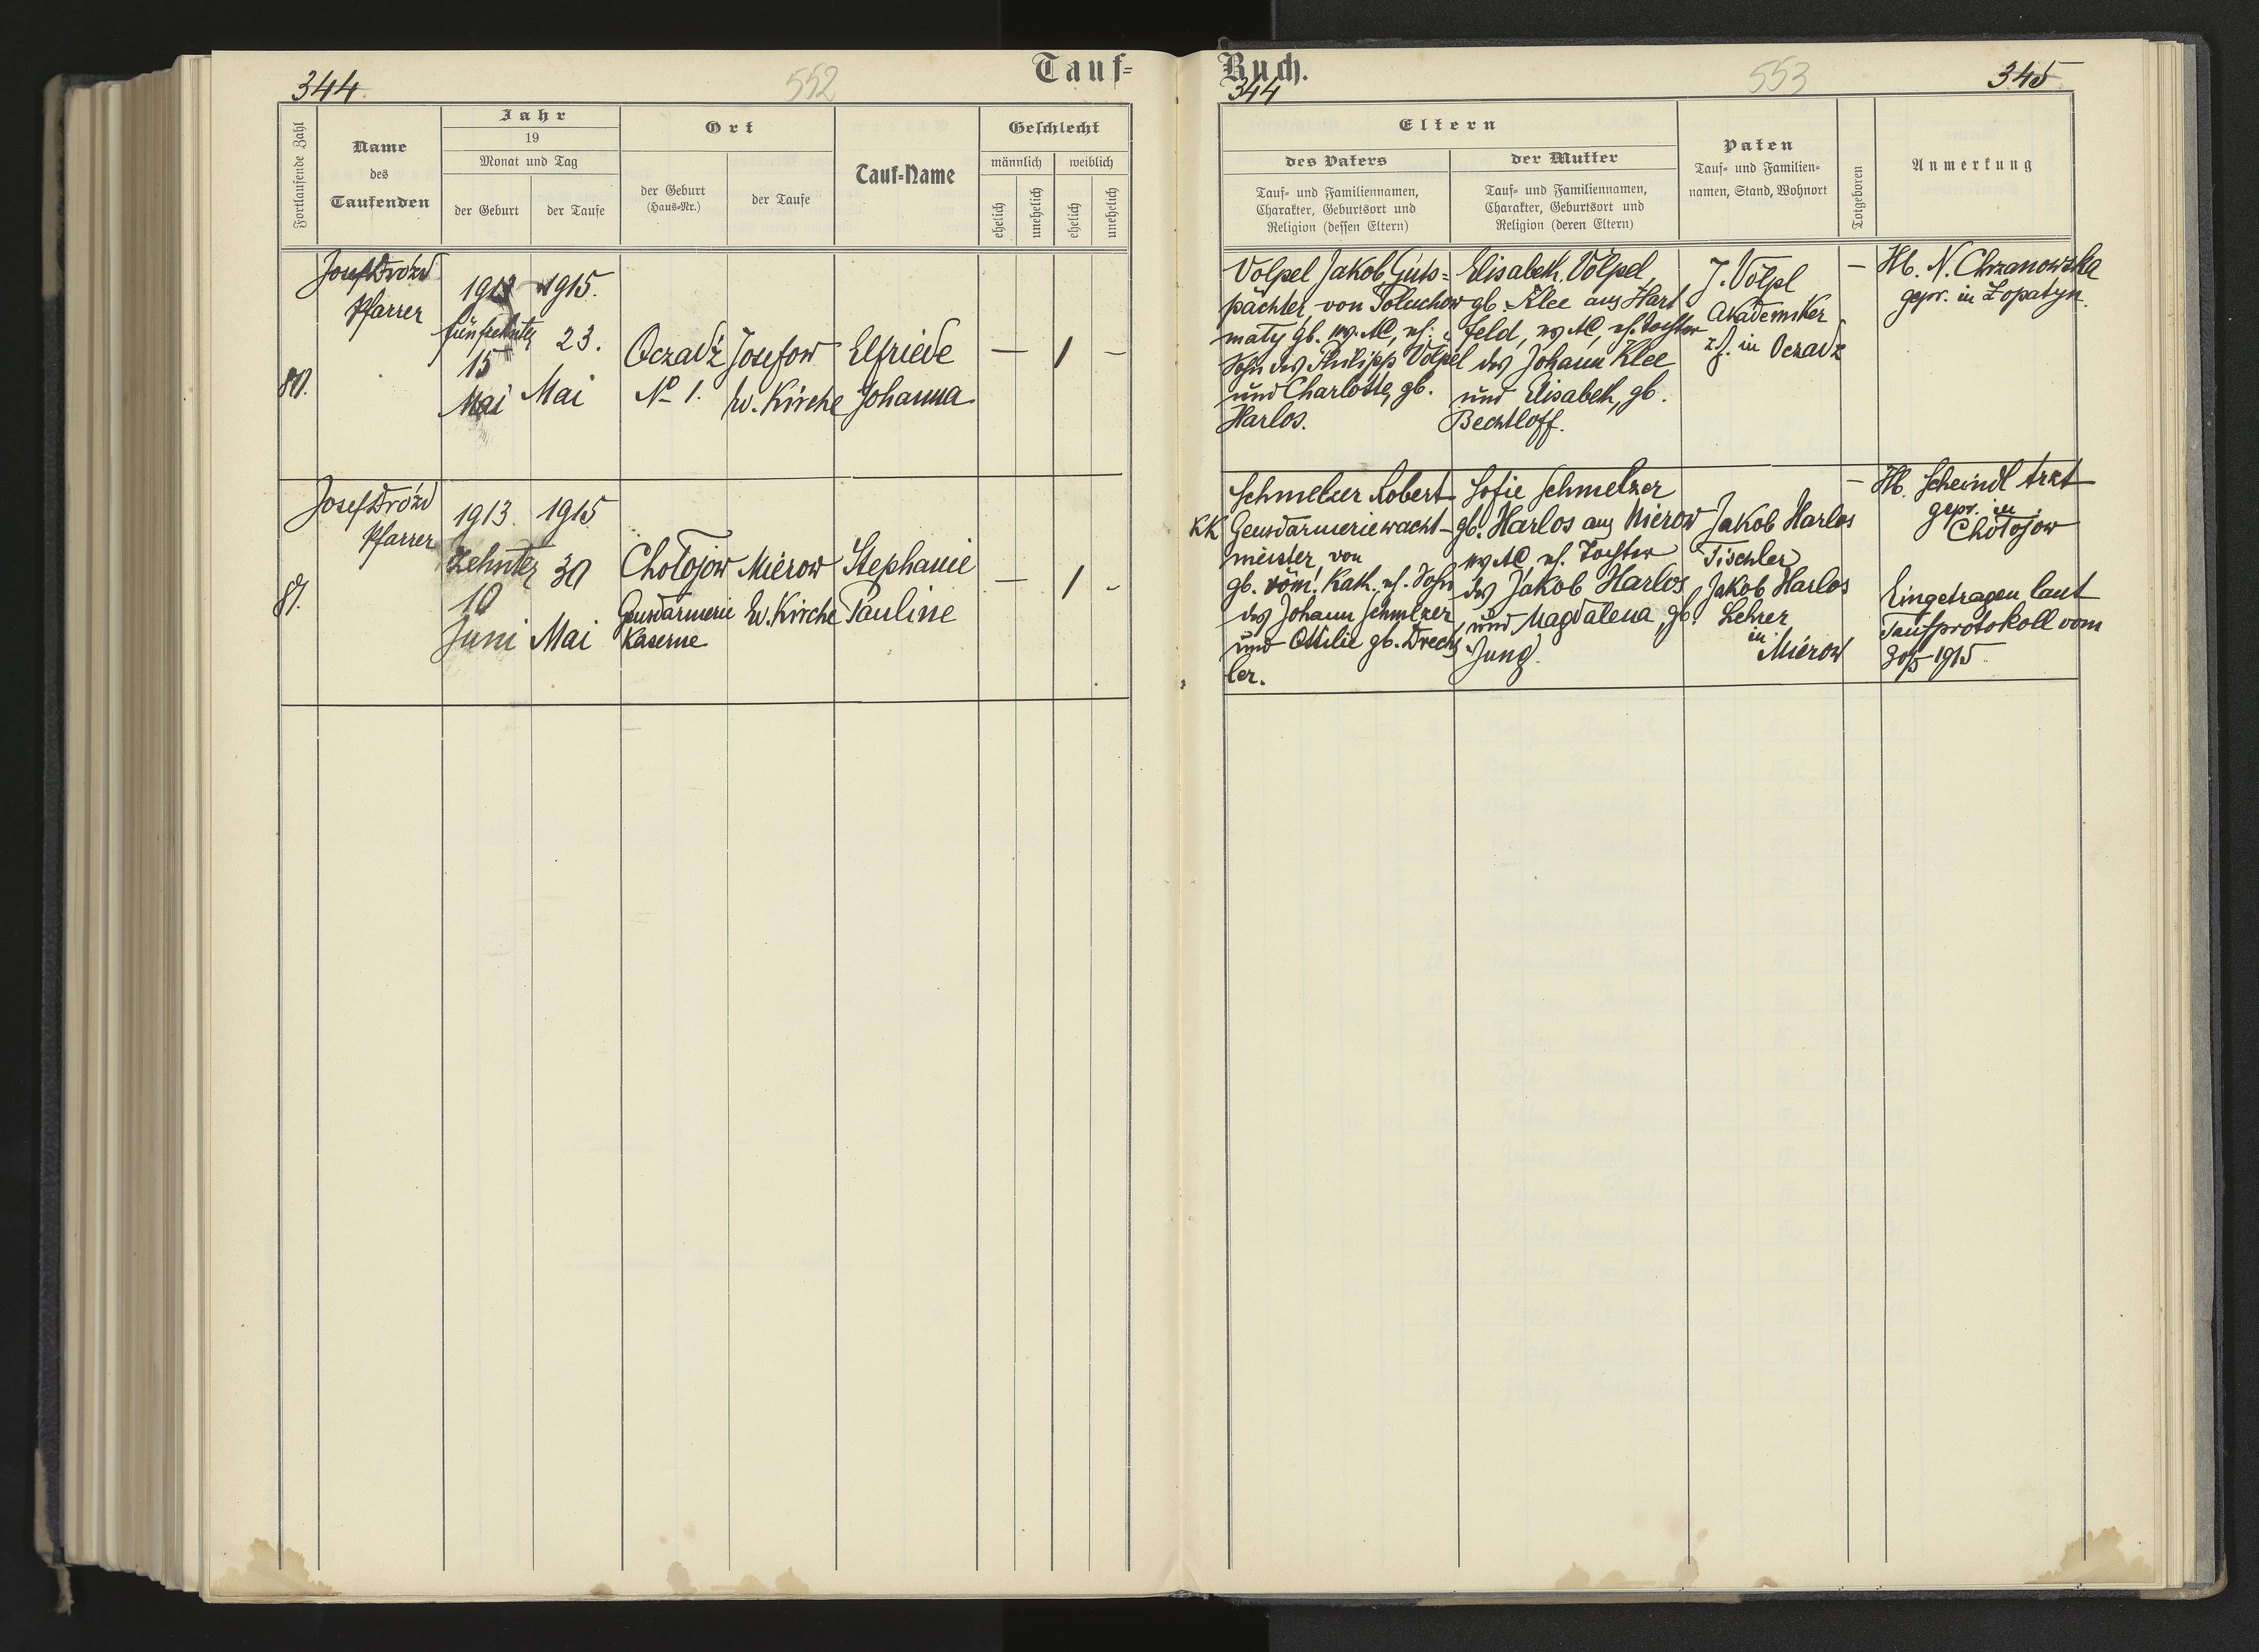 344
552
Tauf=
Fortlaufende Zahl
Name
des
Taufenden
Jahr
19
Monat und Tag
der Geburt
der Taufe
Ort
der Geburt
(Haus=Nr.)
der Taufe
Tauf=Name
Geschlecht
männlich
weiblich
ehelich
unehelich
ehelich
unehelich
80.
Josef Drózd
Pfarrer
15
Mai
1915.
23.
Mai
Oczadż
No 1.
Josefow
Ev. Kirche
Elfriede
Johanna
— 1 —
81.
Josef Drózd
Pfarrer
1913.
Zehnter
10
Juni
1915
30
Mai
Chołojow
Gendarmerie
Kaserne
Mierow
Ev. Kirche
Stephanie
Pauline
— 1 -
Buch.
344
553
345
Eltern
des Vaters
Tauf= und Familiennamen,
Charakter, Geburtsort und
Religion (dessen Eltern)
der Mutter
Tauf= und Familiennamen,
Charakter, Geburtsort und
Religion (deren Eltern)
Paten
Tauf= und Familien=
namen, Stand, Wohnort
Totgeboren
Anmerkung
Volpel Jakob, Guts=
pächter, von
gb. ev. AC,
Sohn des Philipp Völpel
und Charlotte, gb.
Harlos.
Elisabeth Völpel,
gb. Klee aus Hart
feld, ev AC, eh. Tochter
des Johann Klee
und Elisabeth, gb.
Bechtloff.
J. Völpl
Akademiker
z. Z. in Oczadż
—
Hb. N. Chrzanowska
gepr. in Łopatyn.
Schmelzer Robert
KK Gendarmeriewacht-
meister, von
gb. röm. Kath., eh. Sohn
des Johann Schmelzer
und Ottilie gb. Drechs
ler.
Sofie Schmelzer
gb. Harlos aus Mierow
ev AC eh. Tochter
des Jakob Harlos
und Magdalena, gb.
Jung.
Jakob Harlos
Tischler
Jakob Harlos
Lehrer
in
Mierow
—
Hb. Scheindl
gepr. in
Chołojow
Eingetragen laut
Taufprotokoll vom
30/5 1915.